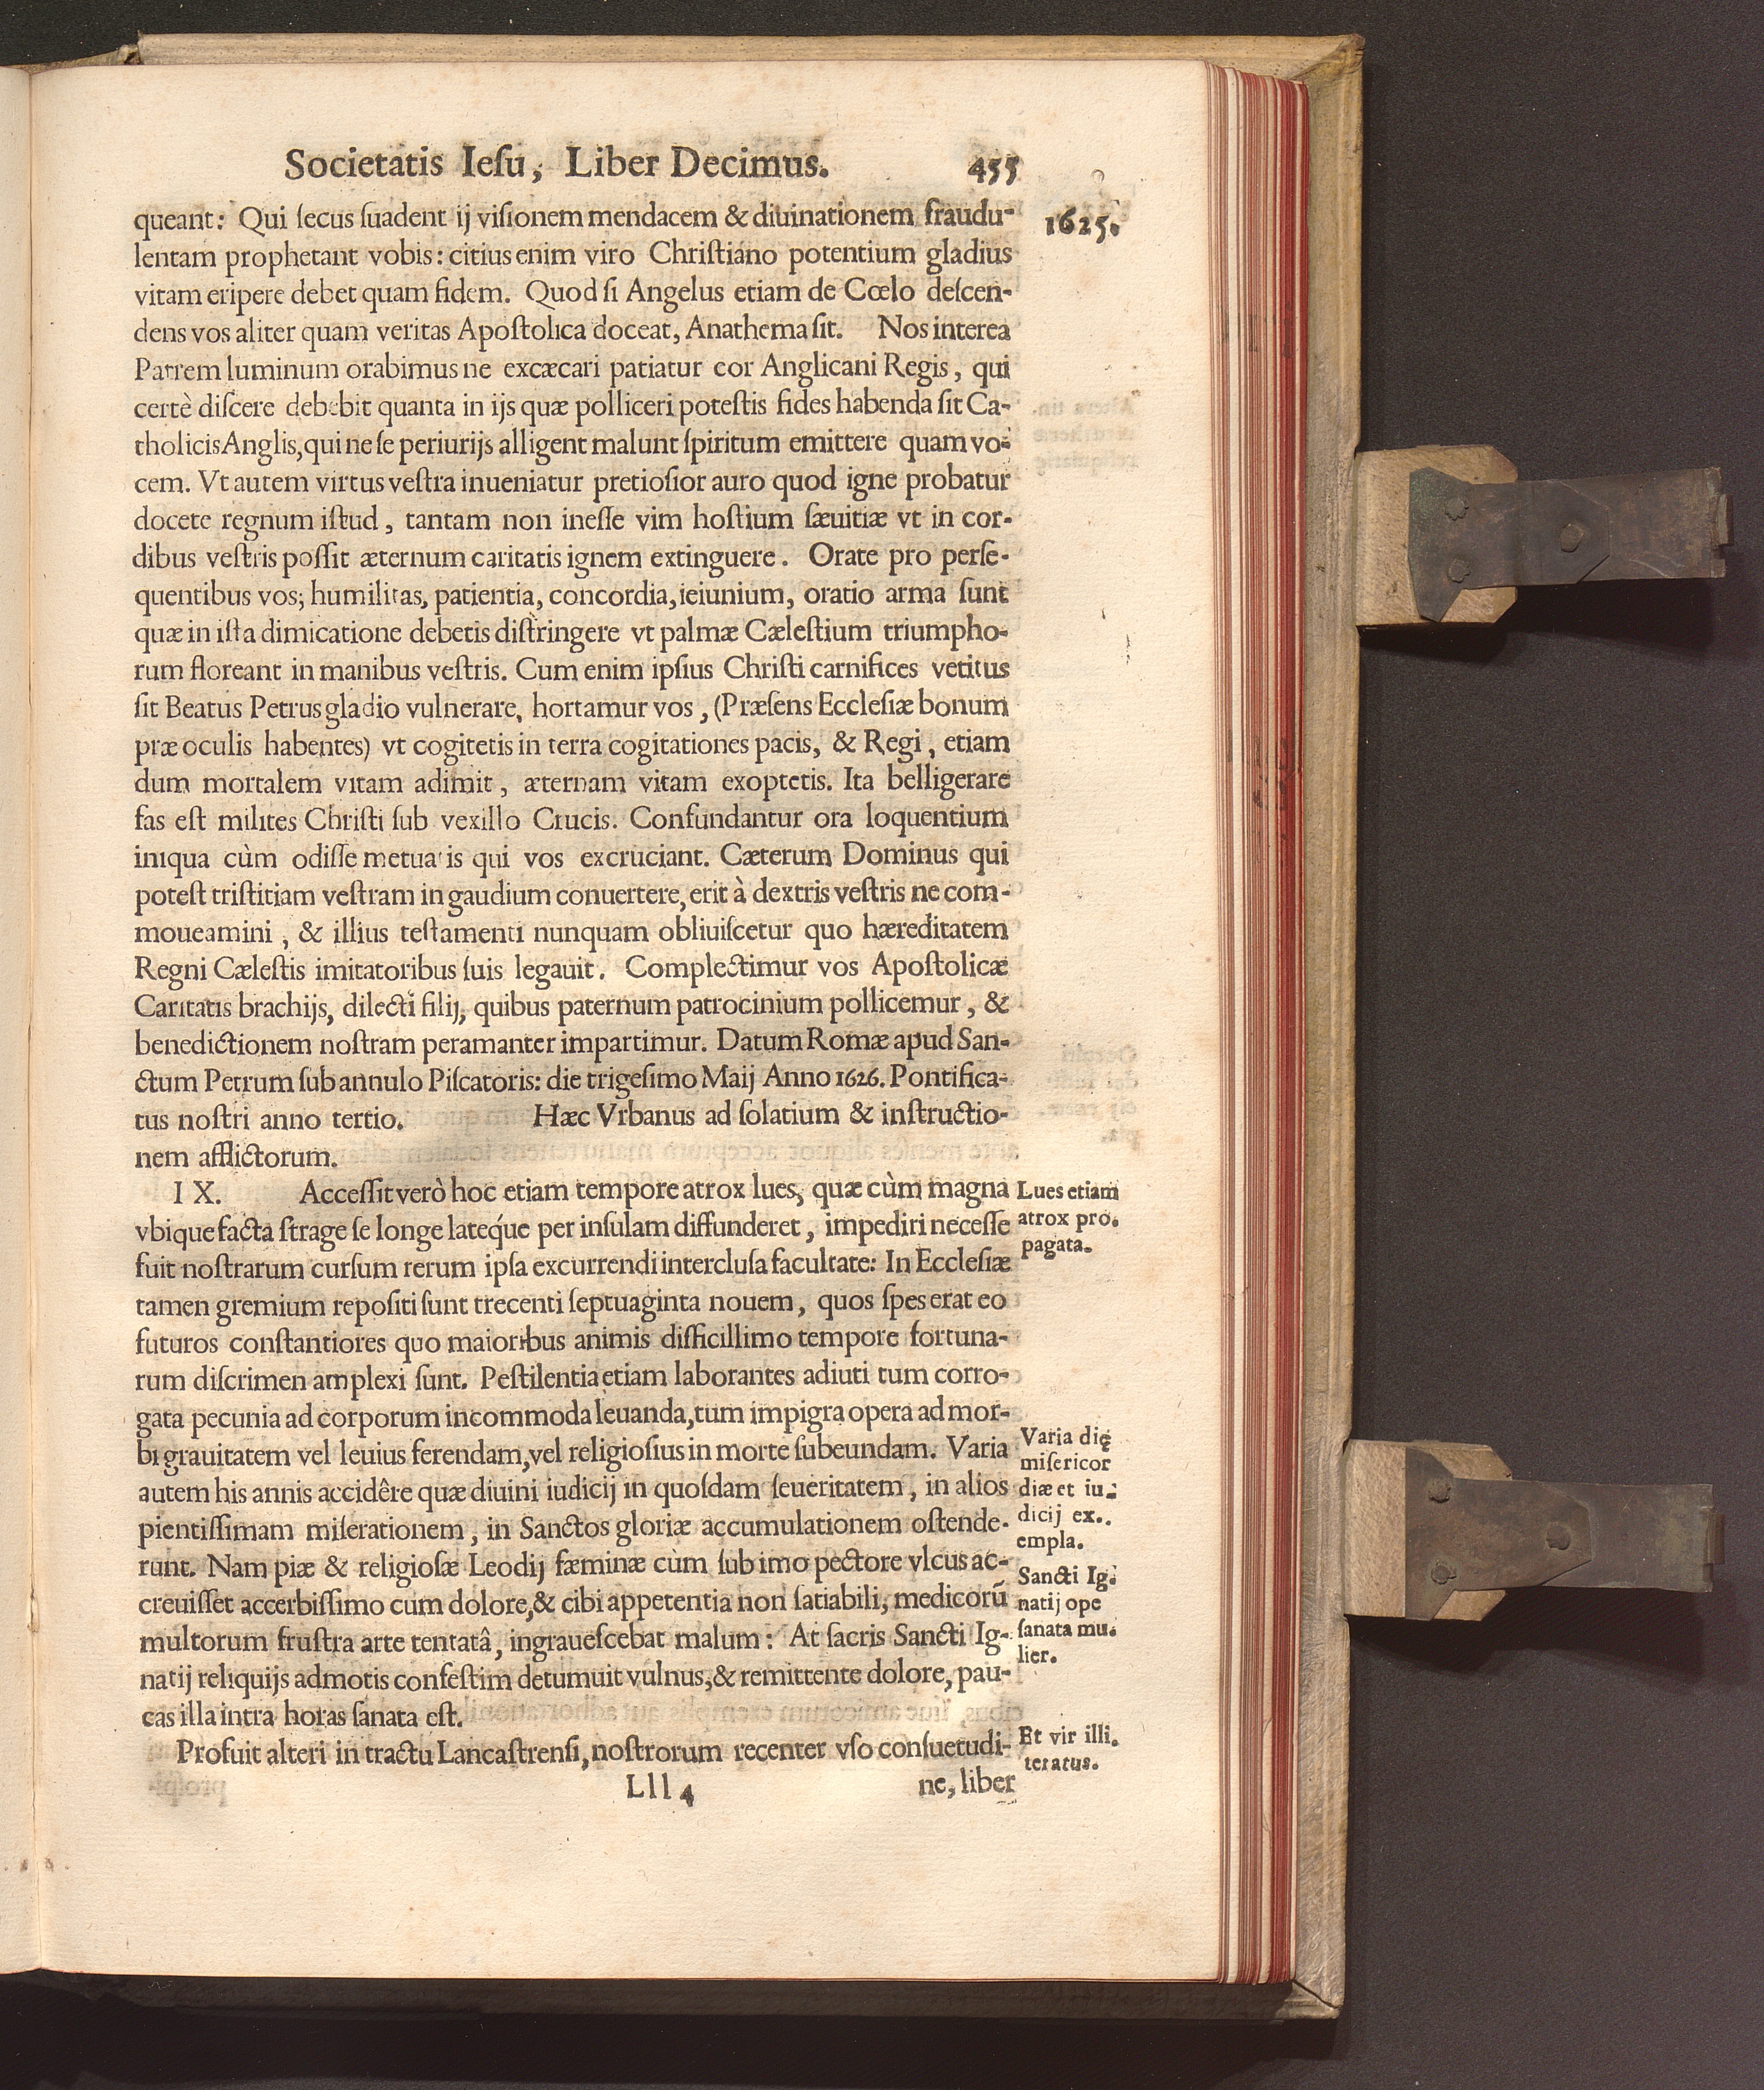 Societatis Ieſu, Liber Decimus. 455
1625.
queant: Qui ſecus ſuadent ij viſionem mendacem & diuinationem fraudu-
lentam prophetant vobis: citius enim viro Chriſtiano potentium gladius
vitam eripere debet quam fidem. Quod ſi Angelus etiam de Cœlo deſcen-
dens vos aliter quam veritas Apoſtolica doceat, Anathema ſit. Nos interea
Patrem luminum orabimus ne excæcari patiatur cor Anglicani Regis, qui
certè diſcere debebit quanta in ijs quæ polliceri poteſtis fides habenda ſit Ca-
tholicis Anglis, qui ne ſe periurijs alligent malunt ſpiritum emittere quam vo-
cem. Vt autem virtus veſtra inueniatur pretioſior auro quod igne probatur
docete regnum iſtud, tantam non ineſſe vim hoſtium ſæuitiæ vt in cor-
dibus veſtris poſſit æternum caritatis ignem extinguere. Orate pro perſe-
quentibus vos; humilitas, patientia, concordia, ieiunium, oratio arma ſunt
quæ in iſta dimicatione debetis diſtringere vt palmæ Cæleſtium triumpho-
rum floreant in manibus veſtris. Cum enim ipſius Chriſti carnifices vetitus
ſit Beatus Petrus gladio vulnerare, hortamur vos, (Præſens Eccleſiæ bonum
præ oculis habentes) vt cogitetis in terra cogitationes pacis, & Regi, etiam
dum mortalem vitam adimit, æternam vitam exoptetis. Ita belligerare
fas eſt milites Chriſti ſub vexillo Crucis. Confundantur ora loquentium
iniqua cùm odiſſe metuatis qui vos excruciant. Cæterum Dominus qui
poteſt triſtitiam veſtram in gaudium conuertere, erit à dextris veſtris ne com-
moueamini, & illius teſtamenti nunquam obliuiſcetur quo hæreditatem
Regni Cæleſtis imitatoribus ſuis legauit. Complectimur vos Apoſtolicæ
Caritatis brachijs, dilecti filij, quibus paternum patrocinium pollicemur, &
benedictionem noſtram peramanter impartimur. Datum Romæ apud San-
ctum Petrum ſub annulo Piſcatoris: die trigeſimo Maij Anno 1626. Pontifica-
tus noſtri anno tertio. Hæc Vrbanus ad ſolatium & inſtructio-
nem afflictorum.
IX. Acceſſit verò hoc etiam tempore atrox lues, quæ cùm magna
vbique facta ſtrage ſe longe latéque per inſulam diffunderet, impediri neceſſe
fuit noſtrarum curſum rerum ipſa excurrendi intercluſa facultate: In Eccleſiæ
tamen gremium repoſiti ſunt trecenti ſeptuaginta nouem, quos ſpes erat eo
futuros conſtantiores quo maioribus animis difficillimo tempore fortuna-
rum diſcrimen amplexi ſunt. Peſtilentia etiam laborantes adiuti tum corro-
gata pecunia ad corporum incommoda leuanda, tum impigra opera ad mor-
bi grauitatem vel leuius ferendam, vel religioſius in morte ſubeundam. Varia
autem his annis accidêre quæ diuini iudicij in quoſdam ſeueritatem, in alios
pientiſſimam miſerationem, in Sanctos gloriæ accumulationem oſtende-
runt. Nam piæ & religioſæ Leodij fæminæ cùm ſub imo pectore vlcus ac-
creuiſſet accerbiſſimo cum dolore, & cibi appetentia non ſatiabili, medicorū
multorum fruſtra arte tentatâ, ingraueſcebat malum: At ſacris Sancti Ig-
natij reliquijs admotis confeſtim detumuit vulnus, & remittente dolore, pau-
cas illa intra horas ſanata eſt.
Profuit alteri in tractu Lancaſtrenſi, noſtrorum recenter vſo conſuetudi-
Lues etiam
atrox pro.
pagata.
Varia dię
miſericor
diæ et iu-
dicij ex..
empla.
Sancti Ig-
natij ope
ſanata mu.
lier.
Et vir illi.
teratus.
Lll 4 ne, liber